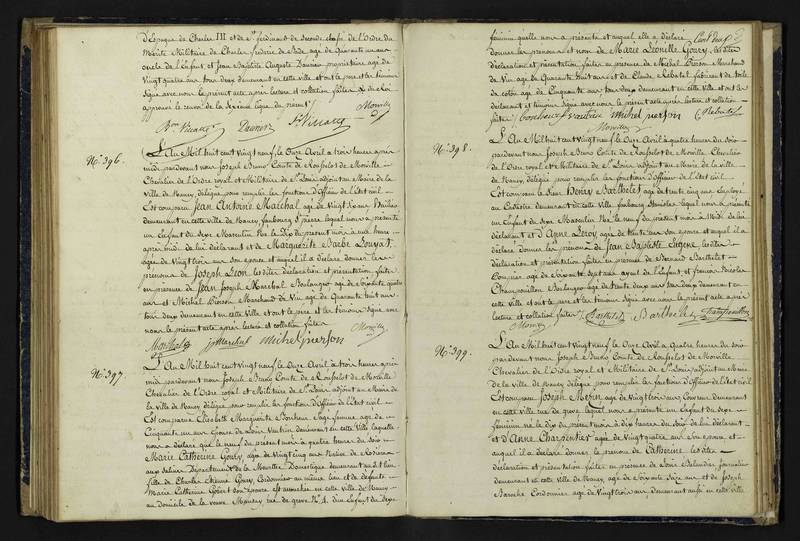 d'Espagne de Charles III et de St. ferdinant de Seconde classe de l'Ordre du
Mérite Militaire de Charles frederic de Bade agé de Quarante un ans
oncle de l'Enfant, et Jean Baptiste Auguste propriétaire agé de
Vingt quatre ans tous deux demeurant en cette ville et ont le pere et les témoins
Signé avec nous le présent acte après lecture et collation faites
approuvé le renvoi de la ligne du présent
No. 396.
L'An Mil huit cent vingt neuf, le Onze Avril à trois heures après
midi pardevant nous Joseph Bruno Comte de Roufselot de Morville
Chevalier de l'Ordre royal et Militaire de St. Louis adjoint au Maire de la
Ville de Nancy, délégué pour remplir les fonctions d'Officier de l'Etat civil
Est comparu Jean Antoine Maréchal agé de Vingt six ans
demeurant en cette ville de Nancy, faubourg St. pierre lequel nous a présenté
un Enfant du Sexe Masculin Né le Dix du présent mois à une heure
après midi de lui déclarant et de Marguerite Barbe Louyat,
agée de Vingt trois ans son épouse et auquel il a déclaré donner les
prénoms de Joseph Léon lesdites déclaration et présentation faites
en présence de Jean Joseph Marchal Boulanger agé de Soixante quatre
ans et Michel Pierson Marchand de Vin agé de Quarante huit ans
tous deux demeurant en cette Ville et ont le pere et les témoins Signé avec
nous le présent acte après lecture et collation faites
Marchal michel pierson Morville
No. 397
L'An Mil huit cent vingt neuf le Onze Avril à trois heures après
midi pardevant nous Joseph Bruno Comte de Roufselot de Morville
Chevalier de l'Ordre royal et Militaire de St. Louis adjoint au Maire de
la Ville de Nancy délégué pour remplir les fonctions d'Officier de l'Etat civil
Est comparue Elisabeth Marguerite Bonheur Sage femme agée de
Cinquante un ans Epouse de Louis Vautrin demeurant en cette Ville laquelle
nous a déclaré que le neuf du présent mois à quatre heures du soir
Marie Catherine Goury, agée de Vingt cinq ans Native de
aux Salines Département de la Meurthe Domestique demeurant audit lieu
fille de Charles Etienne Goury Cordonnier au même lieu et de défunte
Marie Catherine Gobert son épouse est accouchée en cette ville de Nancy
au domicile de la veuve rue de greve No. 4. d'un Enfant du Sexe
féminin qu'elle nous a présenté et auquel elle a déclaré
donner les prénoms et nom de Marie Léonille Goury, lesdites
déclaration et présentation faites en présence de Michel Pierson Marchand
de Vin agé de Quarante huit ans et de Claude Rebatel fabricant de toile
de coton agé de Cinquante ans tous deux demeurant en cette ville et ont la
déclarant et témoins Signé avec nous le présent acte après lecture et collation
faites bonheur f vautrin michel pierson Rebatel
Morville
No. 398.
L'An Mil huit cent vingt neuf, le Onze Avril à quatre heures du soir
pardevant nous Joseph Bruno Comte de Roufselot de Morville Chevalier
de l'Ordre royal et Militaire de St. Louis adjoint au Maire de la ville
de Nancy, délégué pour remplir les fonctions d'Officier de l'Etat civil
Est comparu le Sieur Henry Barthelet agé de trente cinq ans Employé
au Cadastre demeurant en cette ville faubourg Stanislas lequel nous a présenté
un Enfant du Sexe Masculin Né le neuf du présent mois à Midi de lui
déclarant et d'Anne Leroy agée de trente ans son épouse et auquel il a
déclaré donner les prénoms de Jean Baptiste Eugène, lesdites
déclaration et présentation faites en présence de Bernard Barthelet
agé de Soixante sept ans ayeul de l'Enfant, et francois Nicolas
Champouillon Boulanger agé de trente deux ans tous deux demeurant en
cette Ville et ont le pere et les témoins Signé avec nous le présent acte après
lecture et collation faites Barthelet Barthelet Champouillon
Morville
No. 399.
L'An Mil huit cent vingt neuf le Onze Avril à quatre heures du soir
pardevant nous Joseph Bruno Comte de Roufselot de Morville
Chevalier de l'Ordre royal et Militaire de St. Louis adjoint au Maire
de la ville de Nancy, délégué pour remplir les fonctions d'Officier de l'Etat civil
Est comparu Joseph agé de Vingt trois ans Couvreur demeurant
en cette ville rue de greve, lequel nous a présenté un Enfant du Sexe
féminin né le dix du présent mois à dix heures du soir de lui déclarant
et d'Anne Charpentier agée de Vingt quatre ans son épouse, et
auquel il a déclaré donner le prénom de Catherine lesdites
déclaration et présentation faites en présence de Louis journalier
demeurant en cette Ville de Nancy, agé de Soixante Seize ans et de Joseph
Baroche Cordonnier agé de Vingt trois ans, demeurant aussi en cette Ville